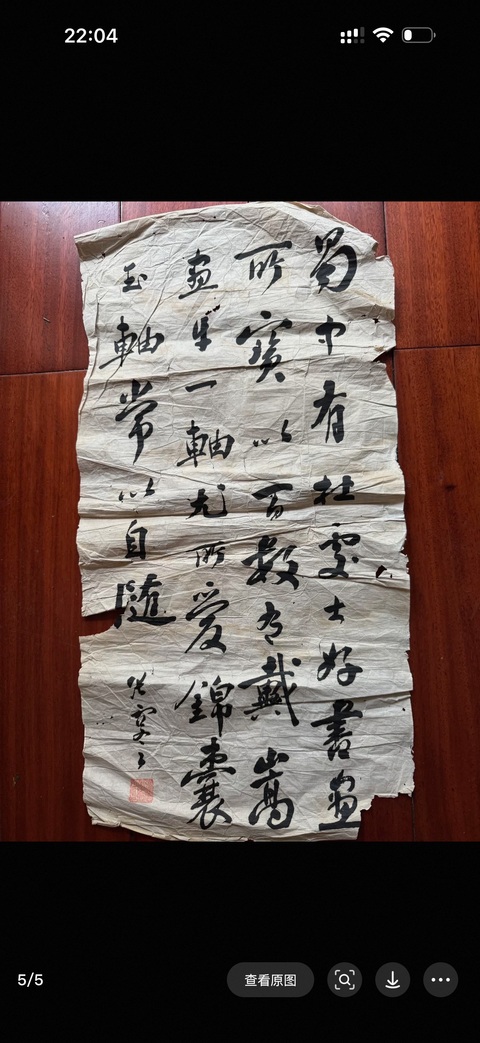 22:04
蜀中有杜處士好書畫
所寶以百數有戴嵩
畫牛一軸尤所愛錦囊
玉軸常以自隨
5/5
查看原图